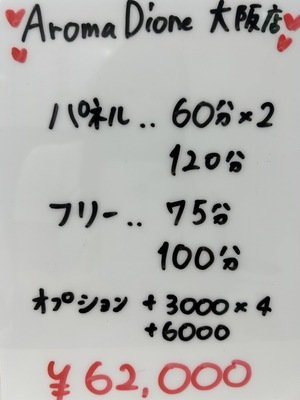 Aroma Dione 大阪店
パネル.. 60分×2
120分
フリー.. 75分
100分
オプション +3000×4
+6000
¥62,000